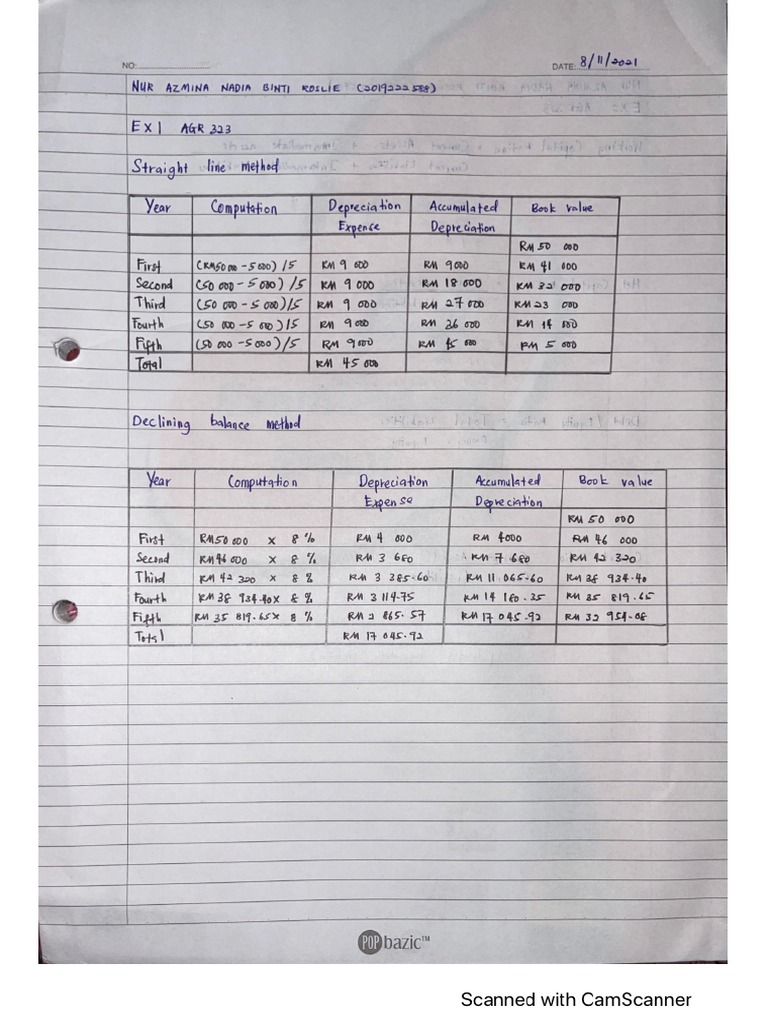 NO:
DATE: 8/11/2021
NUR AZMINA NADIA BINTI ROSLIE (2019222588)
EX 1 AGR 323
Straight line method
Year Computation Depreciation Expense Accumulated Depreciation Book value
RM 50 000
First (RM50 000 - 5 000) /5 RM 9 000 RM 9000 RM 41 000
Second (50 000 - 5 000) /5 RM 9 000 RM 18 000 RM 32 000
Third (50 000 - 5 000)/5 RM 9 000 RM 27 000 RM 23 000
Fourth (50 000 - 5 000)/5 RM 9 000 RM 36 000 RM 14 000
Fifth (50 000 - 5 000)/5 RM 9 000 RM 45 000 RM 5 000
Total RM 45 000
Declining balance method
Year Computation Depreciation Expense Accumulated Depreciation Book value
RM 50 000
First RM50 000 x 8 % RM 4 000 RM 4000 RM 46 000
Second RM46 000 x 8 % RM 3 680 RM 7 680 RM 42 320
Third RM 42 320 x 8 % RM 3 385.60 RM 11 065.60 RM 38 934.40
Fourth RM 38 934.40 x 8 % RM 3 114.75 RM 14 180.35 RM 35 819.65
Fifth RM 35 819.65 x 8 % RM 2 865.57 RM 17 045.92 RM 32 954.08
Total RM 17 045.92
POP bazic™
Scanned with CamScanner